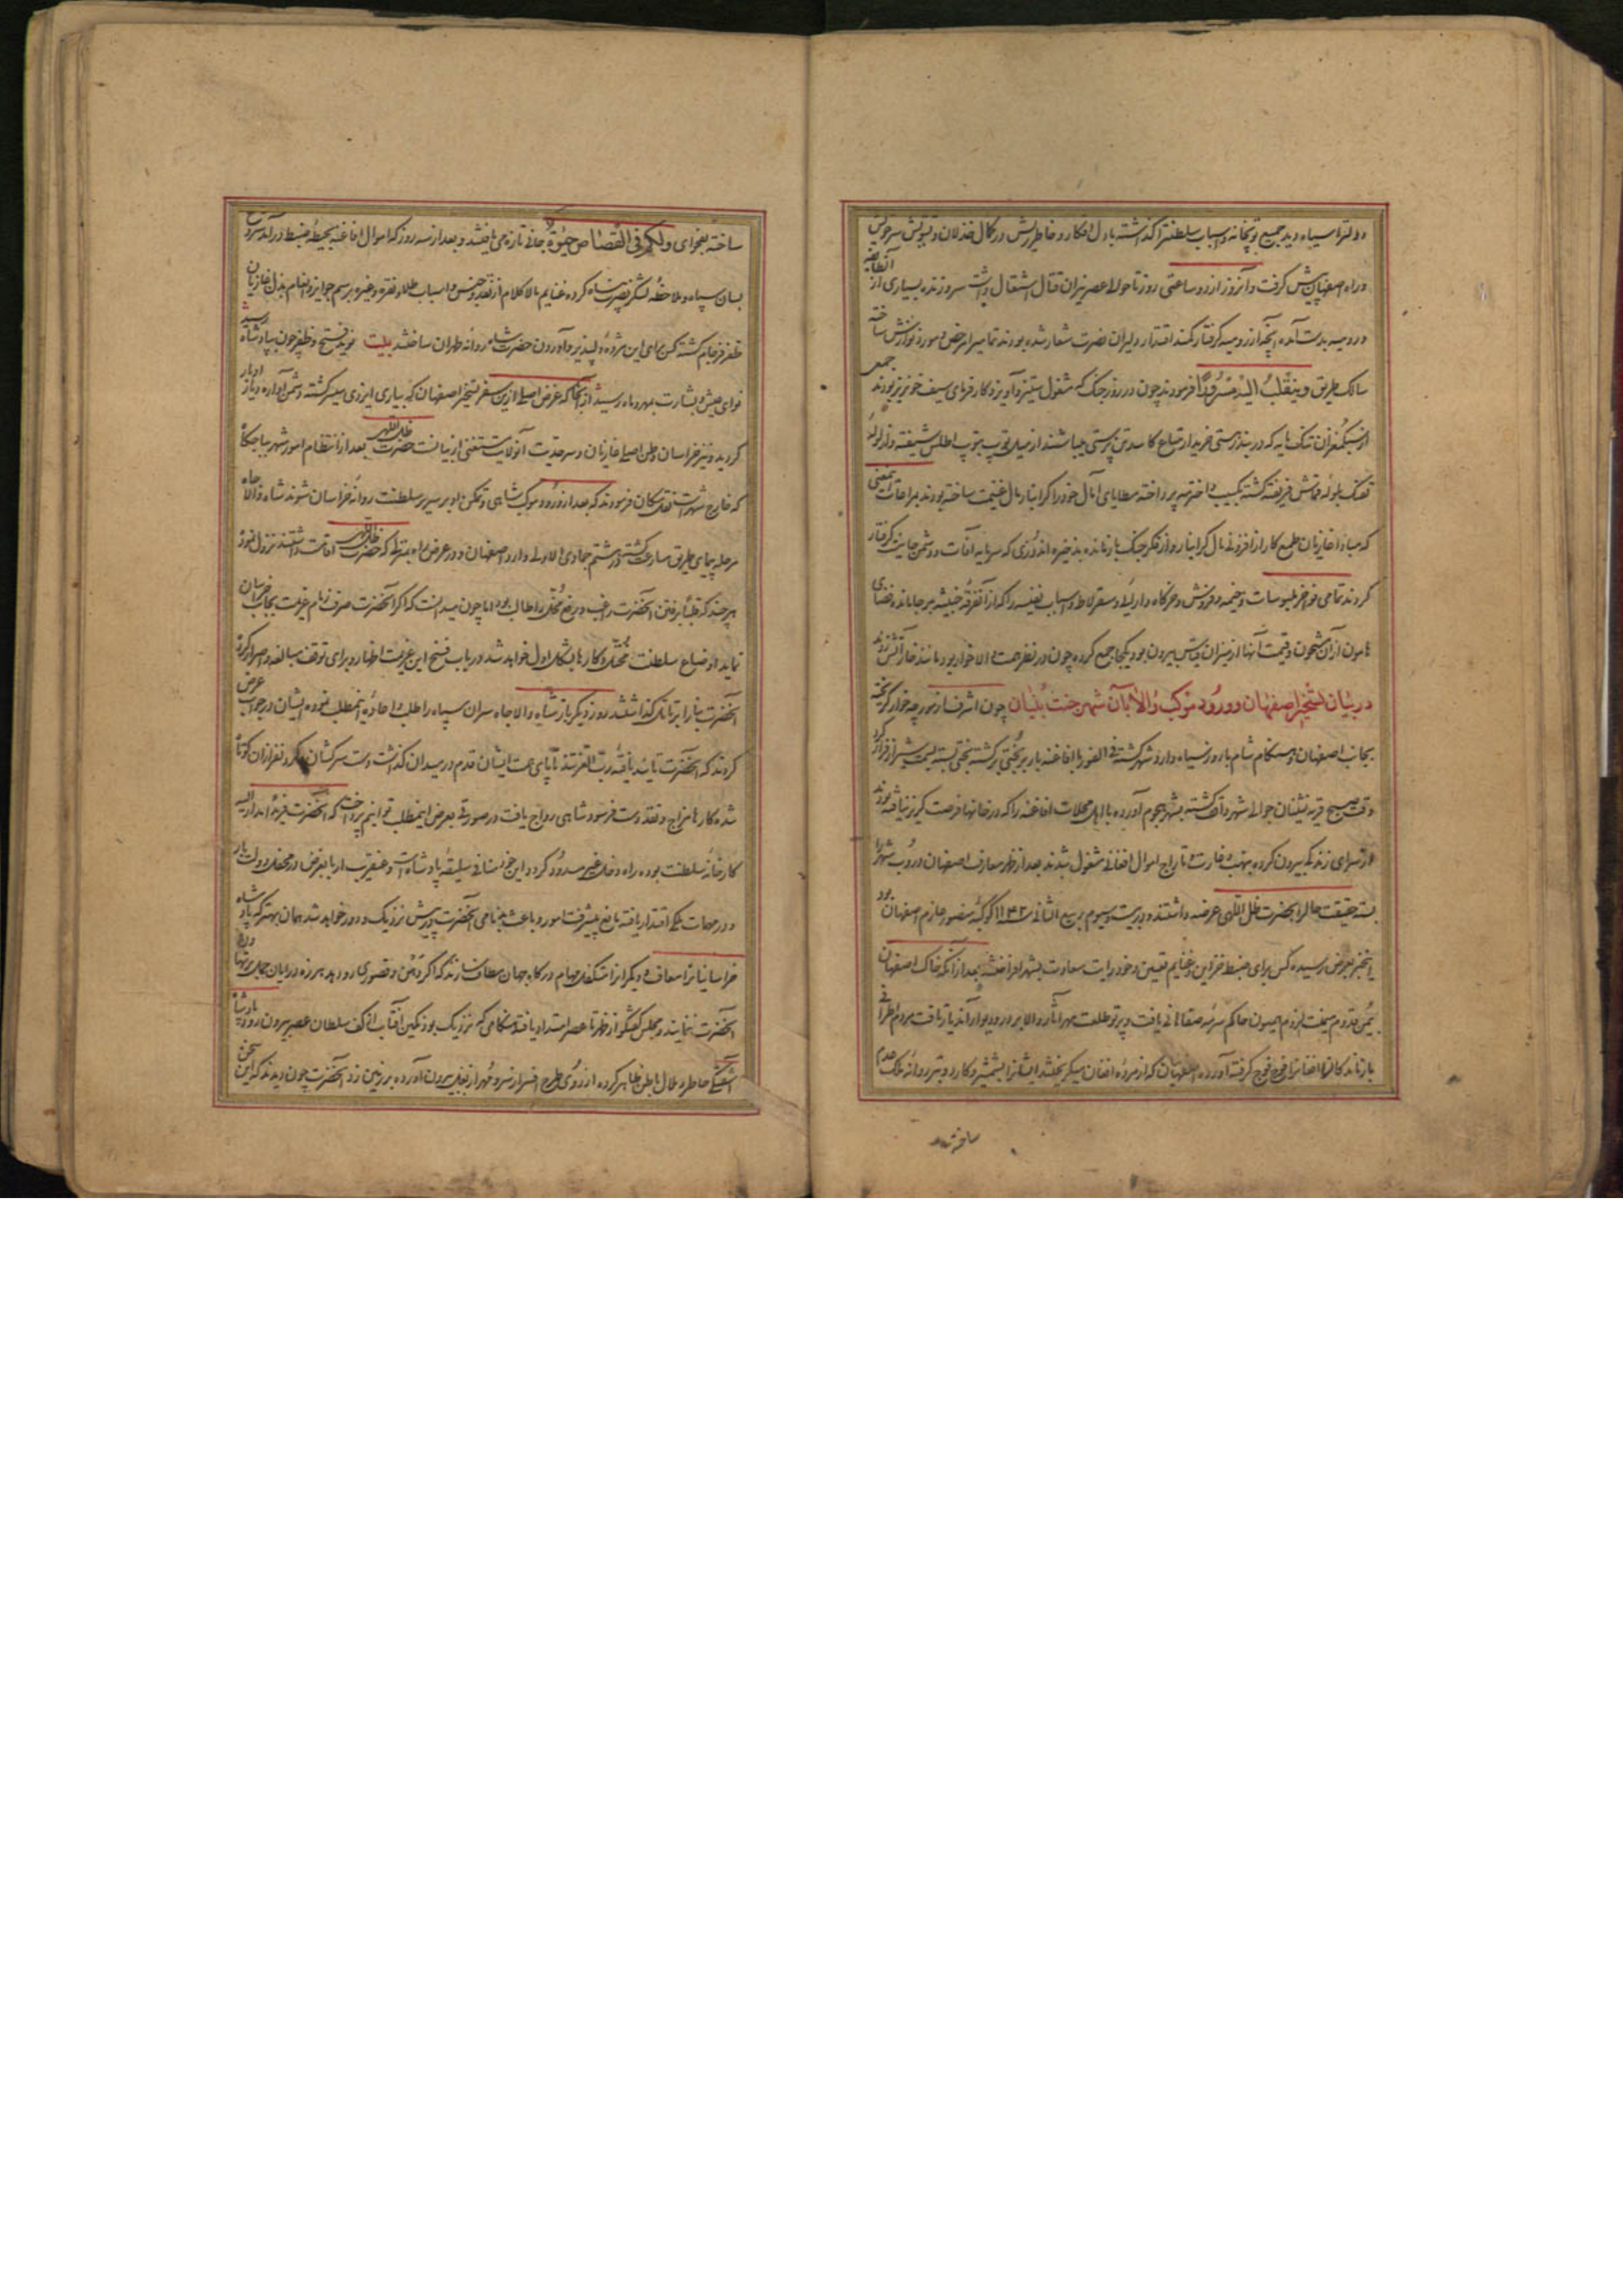 دولترا سیاه دید جمیع توپخانه و اسباب سلطنترا گذاشته با دل افکار و خاطر ریش در کمال خذلان و تشویش سر خویش
و راه اصفهان پیش گرفت و آنروز از دو ساعتی روز تا حوالی عصر نیران قتال اشتعال داشت سر و زنده بسیاری از آنطایفه
و رومیه بدست آمده آنچه از رومیه گرفتار کمند اقتدار دلیران نصرت شعار شده بودند تمامیرا مرخص و مورد نوازش ساخته
سالک طریق وینقلب الی اهله مسرورا فرمودند چون در روز جنگ که مشغول ستیز و آویز و کارفرمای سیف خونریز بودند جمعی
از سبکمغزان تنک مایه که در بند زرپرستی خریدار متاع کاسد تن پرستی میباشند از میل توپ بتوپ اطلس شیفته و از لوله
تفنک بلوله قماش فریفته گشته بکسب و اخذ سپه پرداخته مطایای آمال خود را گرانبار مال غنیمت ساخته بودند بمراعات اینمعنی
که مبادا غازیان طمع کار از افزونی مال گرانبار و از فکر جنک بازمانده بذخیره اندوزی که سرمایه آفات و دشمن جانست گرفتار
گردند تمامی فواخر ملبوسات و خیمه و فروش و خرگاه و ارلیه و سقرلاط و اسباب نفیسه را که از آنفرقه خبیثه بر جا مانده فضای
هامون از آن مشحون و قیمت آنها از میزان قیاس بیرون بود یکجا جمع کرده چون در نظر همت والا خوار بود مانند خار آتش زدند
در بیان تسخیر اصفهان و ورود موکب والا بآن شهر جنت بنیان چون اشرف از مورچه خوار گریخته
بجانب اصفهان و هنگام شام با روز سیاه وارد شهر گشته فی الفور با افاغنه بار بر بختی برگشته بختی بسته بسمت شیراز فرار کرد
وقت صبح قریه نشینان حوالی شهر واقف گشته بشهر هجوم آورده با اهل محلات افاغنه را که در خانها فرصت گریز نیافته بودند
از سرای زندگی بیرون کرده بنهب و غارت و تاراج اموال افغانی مشغول شدند بعد از ظهر معارف اصفهان دروب شهر را
بسته حقیقت حال را بحضرت ظل اللهی عرضه داشتند و در بیست و سیوم ربیع الثانی سنه ۱۱۴۲ کوکبه منصور عازم اصفهان بود
اینخبر بعرض رسیده کس برای ضبط خزاین و غنایم تعیین و خود رایت سعادت بشهر افراختند بعد از آنکه خاک اصفهان
بیمن قدوم میمنت لزوم همیون حاکم سرمه صفاهانی یافت و پرتو طلعت مهر آثار والا بر در و دیوار آن دیار تافت مردم اطراف
بازماندگان افغانرا فوج فوج گرفته آورده اصفهانیان که از مرده افغان میگریختند ایشانرا بشمشیر و کارد و تبر روانه ملک عدم
ساختند
ساخته بفحوای ولکم فی القصاص حیوة جانی تازه می یافتند و بعد از سه روز که اموال افاغنه بحیطه ضبط درآمد شروع
بسان سپاه و ملاحظه لشکر نصرت پناه کرده غنایم مالا کلام از نقد و جنس و اسباب طلا و نقره و غیره برسم جوایز و انعام بذل غازیان
ظفر فرجام گشته کس برای این مژده دلپذیر و آوردن حضرت شاه روانه طهران ساختند بیت نوید فتح و ظفر چون بپادشاه رسید
نوای عیش و بشارت بمهر و ماه رسید از آنجا که غرض اصلی از این سفر تسخیر اصفهان که بیاری ایزدی میسر گشته دشمن آواره دیار ادبار
گردید و نیز خراسان وطن اصلی غازیان و سرحدیت آنولایت مستغنی از بیانست حضرت ظل اللهی بعد از انتظام امور شهر بباجگاه
که خارج شهر است نقل مکان فرمودند که بعد از ورود موکب شاهی و تمکن او بر سریر سلطنت روانه خراسان شوند شاه والاجاه
مرحله پیمای طریق مسارعت گشته در هشتم جمادی الاولی وارد اصفهان و در عرض راه بمنزل که حضرت ظل اللهی اقامت داشتند نزول نمود
هر چند که قلبا برفتن آنحضرت راغب و رفع مخل را طالب بود اما چون میدانست که اگر آنحضرت صرف زمام عزیمت بجانب خراسان
نماید اوضاع سلطنت مختل و کارها بشکل اول خواهد شد در باب فسخ این عزیمت اظهار و برای توقف مبالغه و اصرار کرد
آنحضرت بنا را بر تامل گذاشتند روز دیگر باز شاه والاجاه سران سپاه را طلب و اعاده اینمطلب نموده ایشان در جواب عرض
کردند که آنحضرت تایید یافته رب العزتند تا پای همت ایشان قدم در میدان گذاشت دست سرکشان و گردنفرازان کوتاه
شده کارها مزاج و نقد دست فرسود شاهی رواج یافت در صورتی بعرض اینمطلب توانیم پرداخت که آنحضرت نیز نواب امدار الیه
کارخانه سلطنت بوده راه دخل غیر مسدود گردد این خود منافی سلیقه پادشاه است و عنقریب ارباب غرض در محفل دولت بار
و در مهمات ملکی اقتدار یافته مانع پیشرفت امور و باعث بدنامی آنحضرت پیش نزدیک و دور خواهد شد همان بهتر که پادشاه
خراسانیانرا معاف و دیگرانرا متکفل مهام درگاه جهان مطاف سازند که اگر وهن و قصوری رو دهد هرزه درایان حمل بر تهاون
آنحضرت ننمایند و مجلس گفتگو از ظهر تا عصر امتداد یافته هنگامی که نزدیک بود نگین آفتاب از کف سلطان عصر بیرون رود پادشاه
آشفتگی خاطر و ملال باطن ظاهر کرده از روی طرح افسر از سر و مهر از بغل بیرون آورده بر زمین زد آنحضرت چون دیدند که این سخن